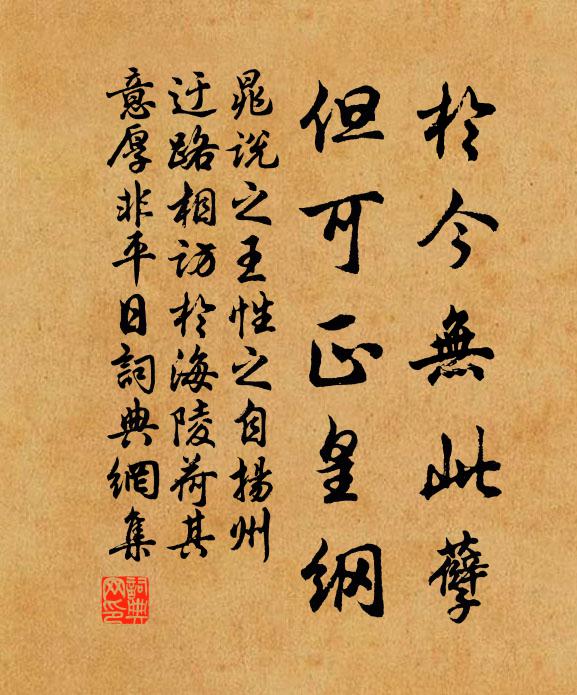 於今無此孽
但可正皇綱
晁說之王性之自揚州
迂路相訪於海陵荷其
意厚非平日詞典網集
詞典网印